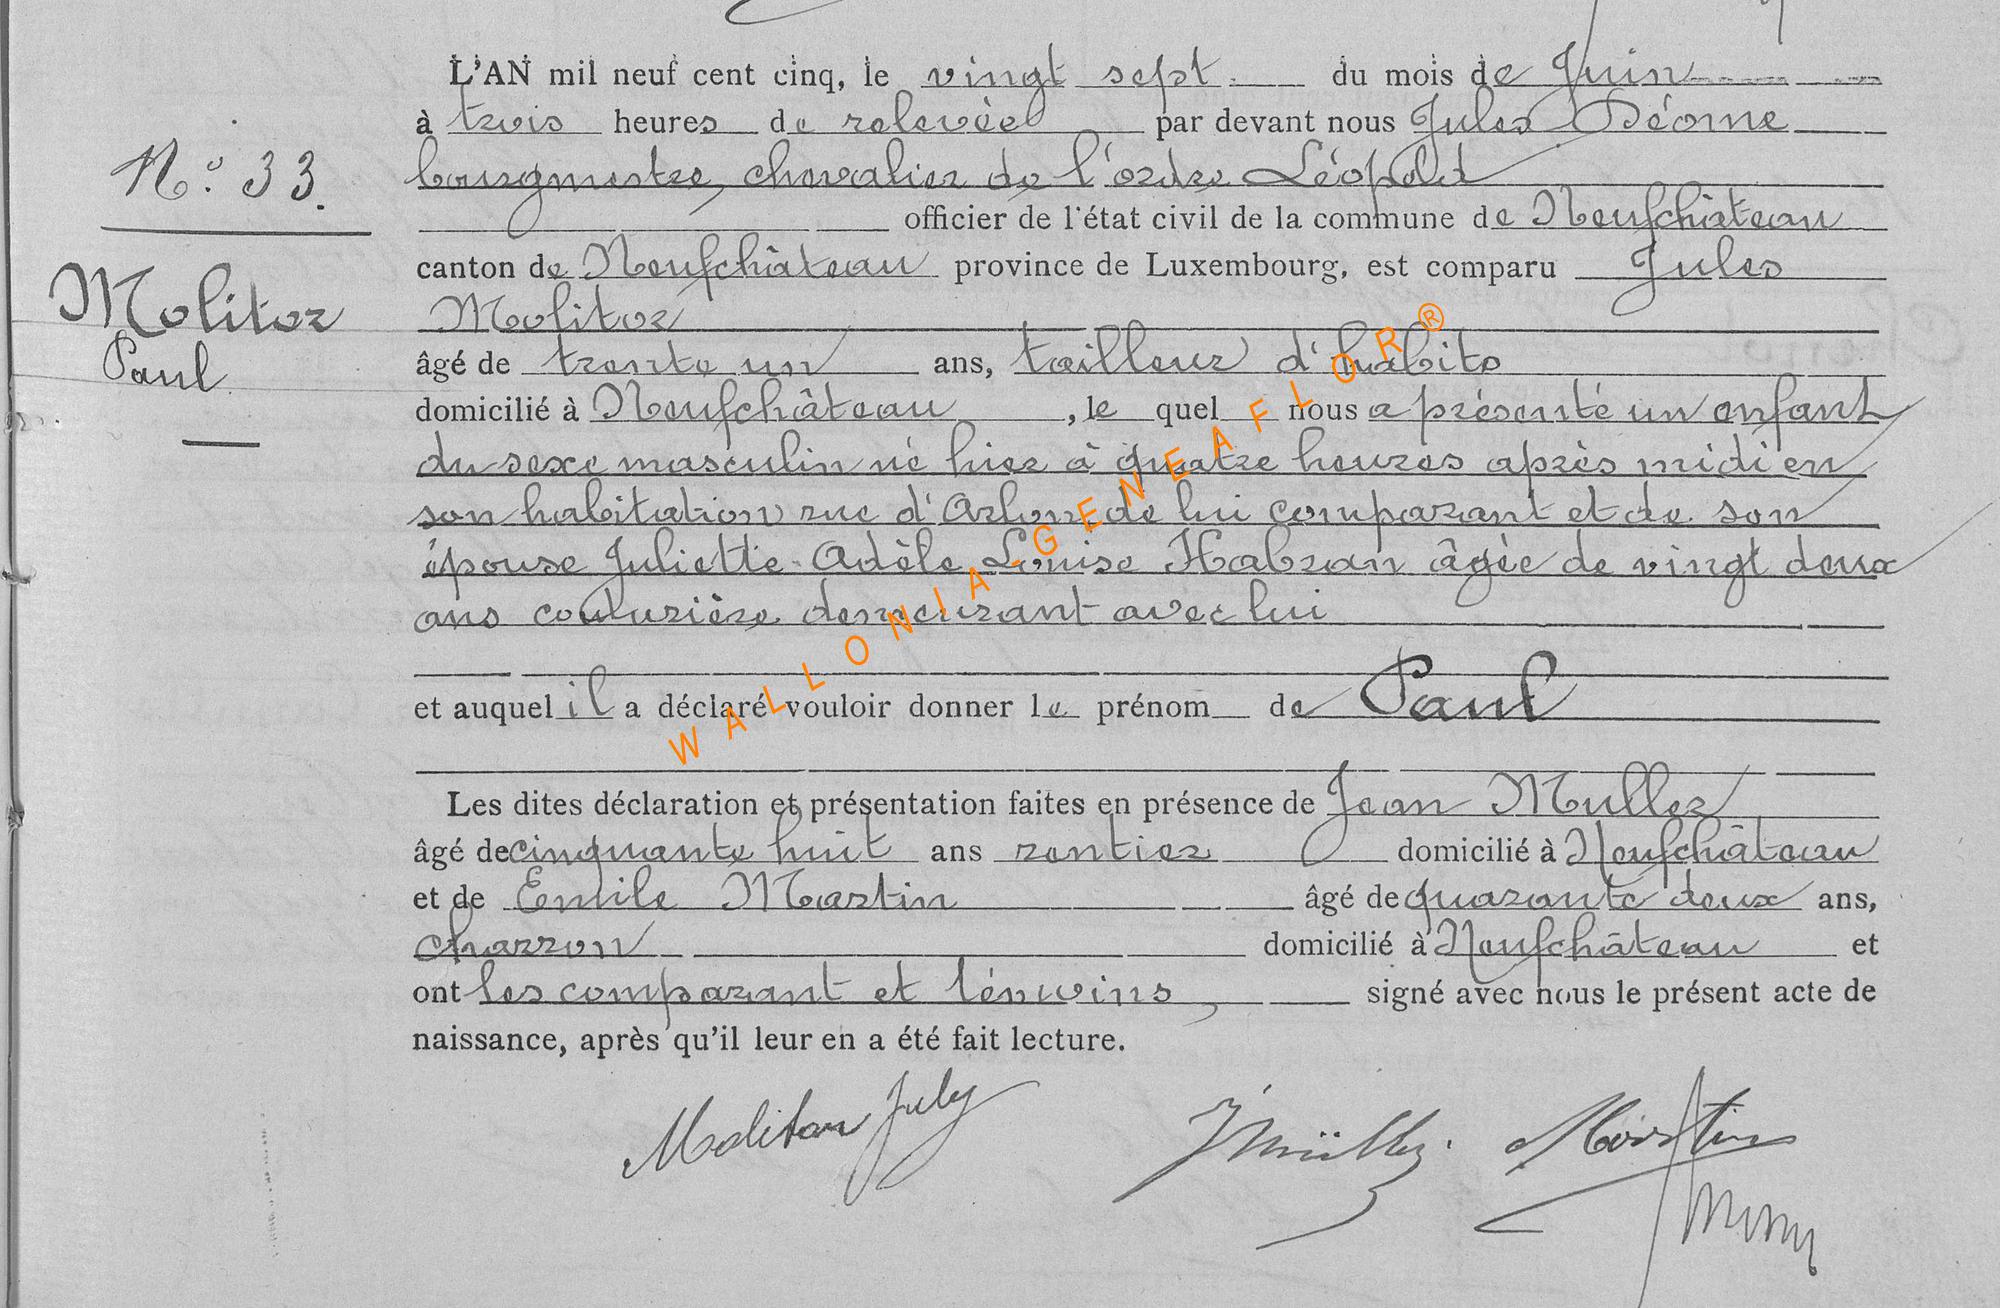 L'AN mil neuf cent cinq, le vingt sept du mois de Juin
à trois heures de relevée par devant nous Jules Déome
N.° 33.
bourgmestre, chevalier de l'ordre Léopold
officier de l'état civil de la commune de Neufchâteau
canton de Neufchâteau province de Luxembourg, est comparu Jules
Molitor
Paul
Molitor
âgé de trente un ans, tailleur d'habits
domicilié à Neufchâteau, le quel nous a présenté un enfant
du sexe masculin né hier à quatre heures après midi en
son habitation rue d'Arlon de lui comparant et de son
épouse Juliette Adèle Louise Habran âgée de vingt deux
ans couturière demeurant avec lui
et auquel il a déclaré vouloir donner le prénom de Paul
Les dites déclaration et présentation faites en présence de Jean Muller
âgé de cinquante huit ans rentier domicilié à Neufchâteau
et de Emile Martin âgé de quarante deux ans,
charron domicilié à Neufchâteau et
ont les comparant et témoins, signé avec nous le présent acte de
naissance, après qu'il leur en a été fait lecture.
Molitor July JMüller. Martin
WALLONIA-GENEAFLOR®